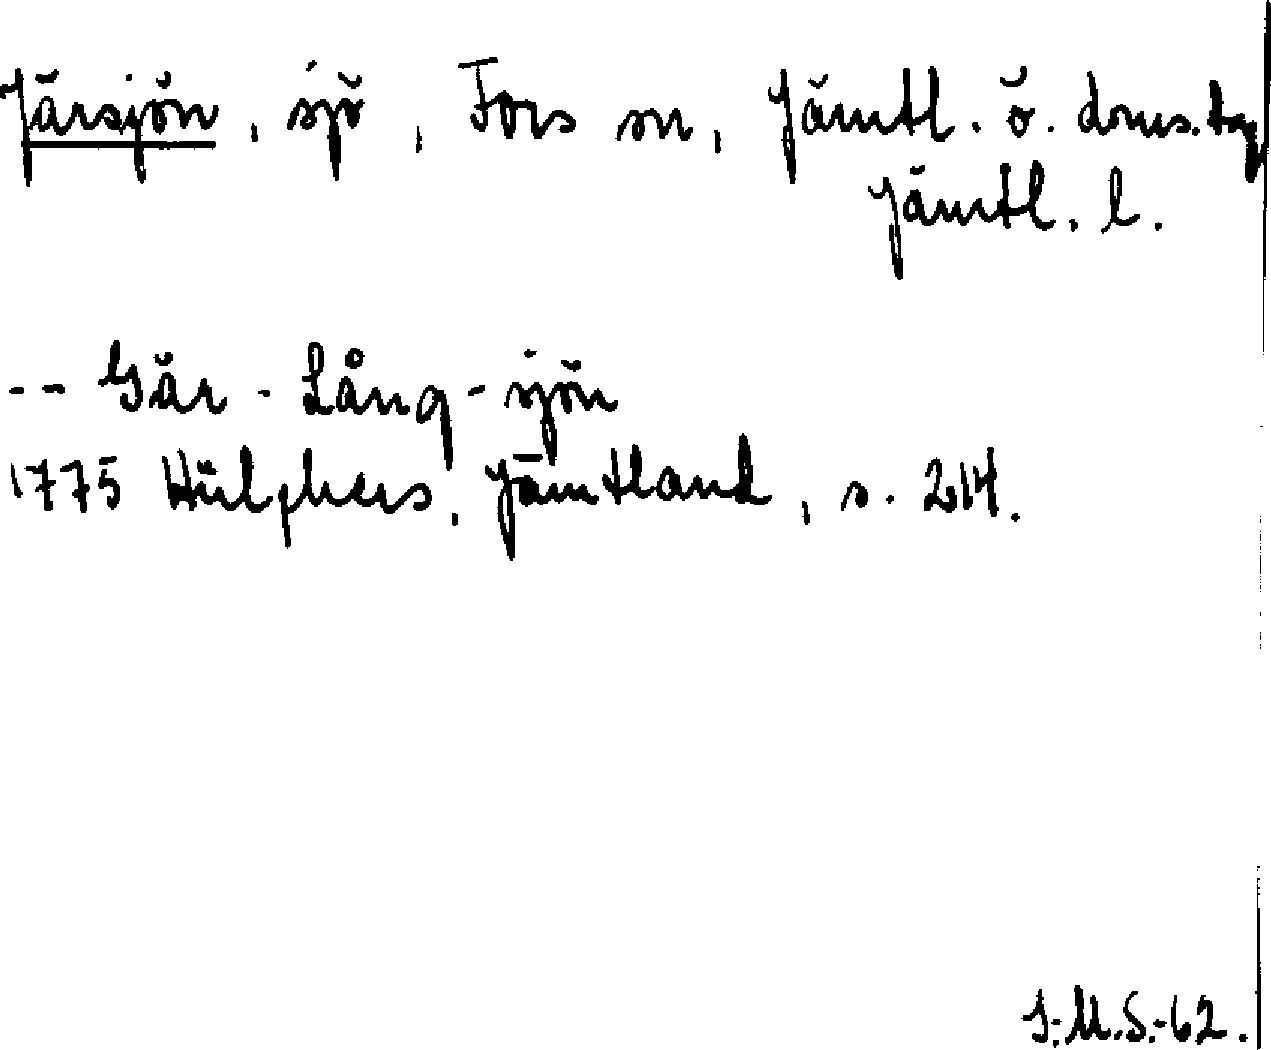 Järsjön, sjö, Fors sn, Jämtl. ö. doms.tg
Jämtl. l.
-- Gär-Lång-sjön
1775 Hülphers, Jämtland, s. 214.
I.M.S.-62.